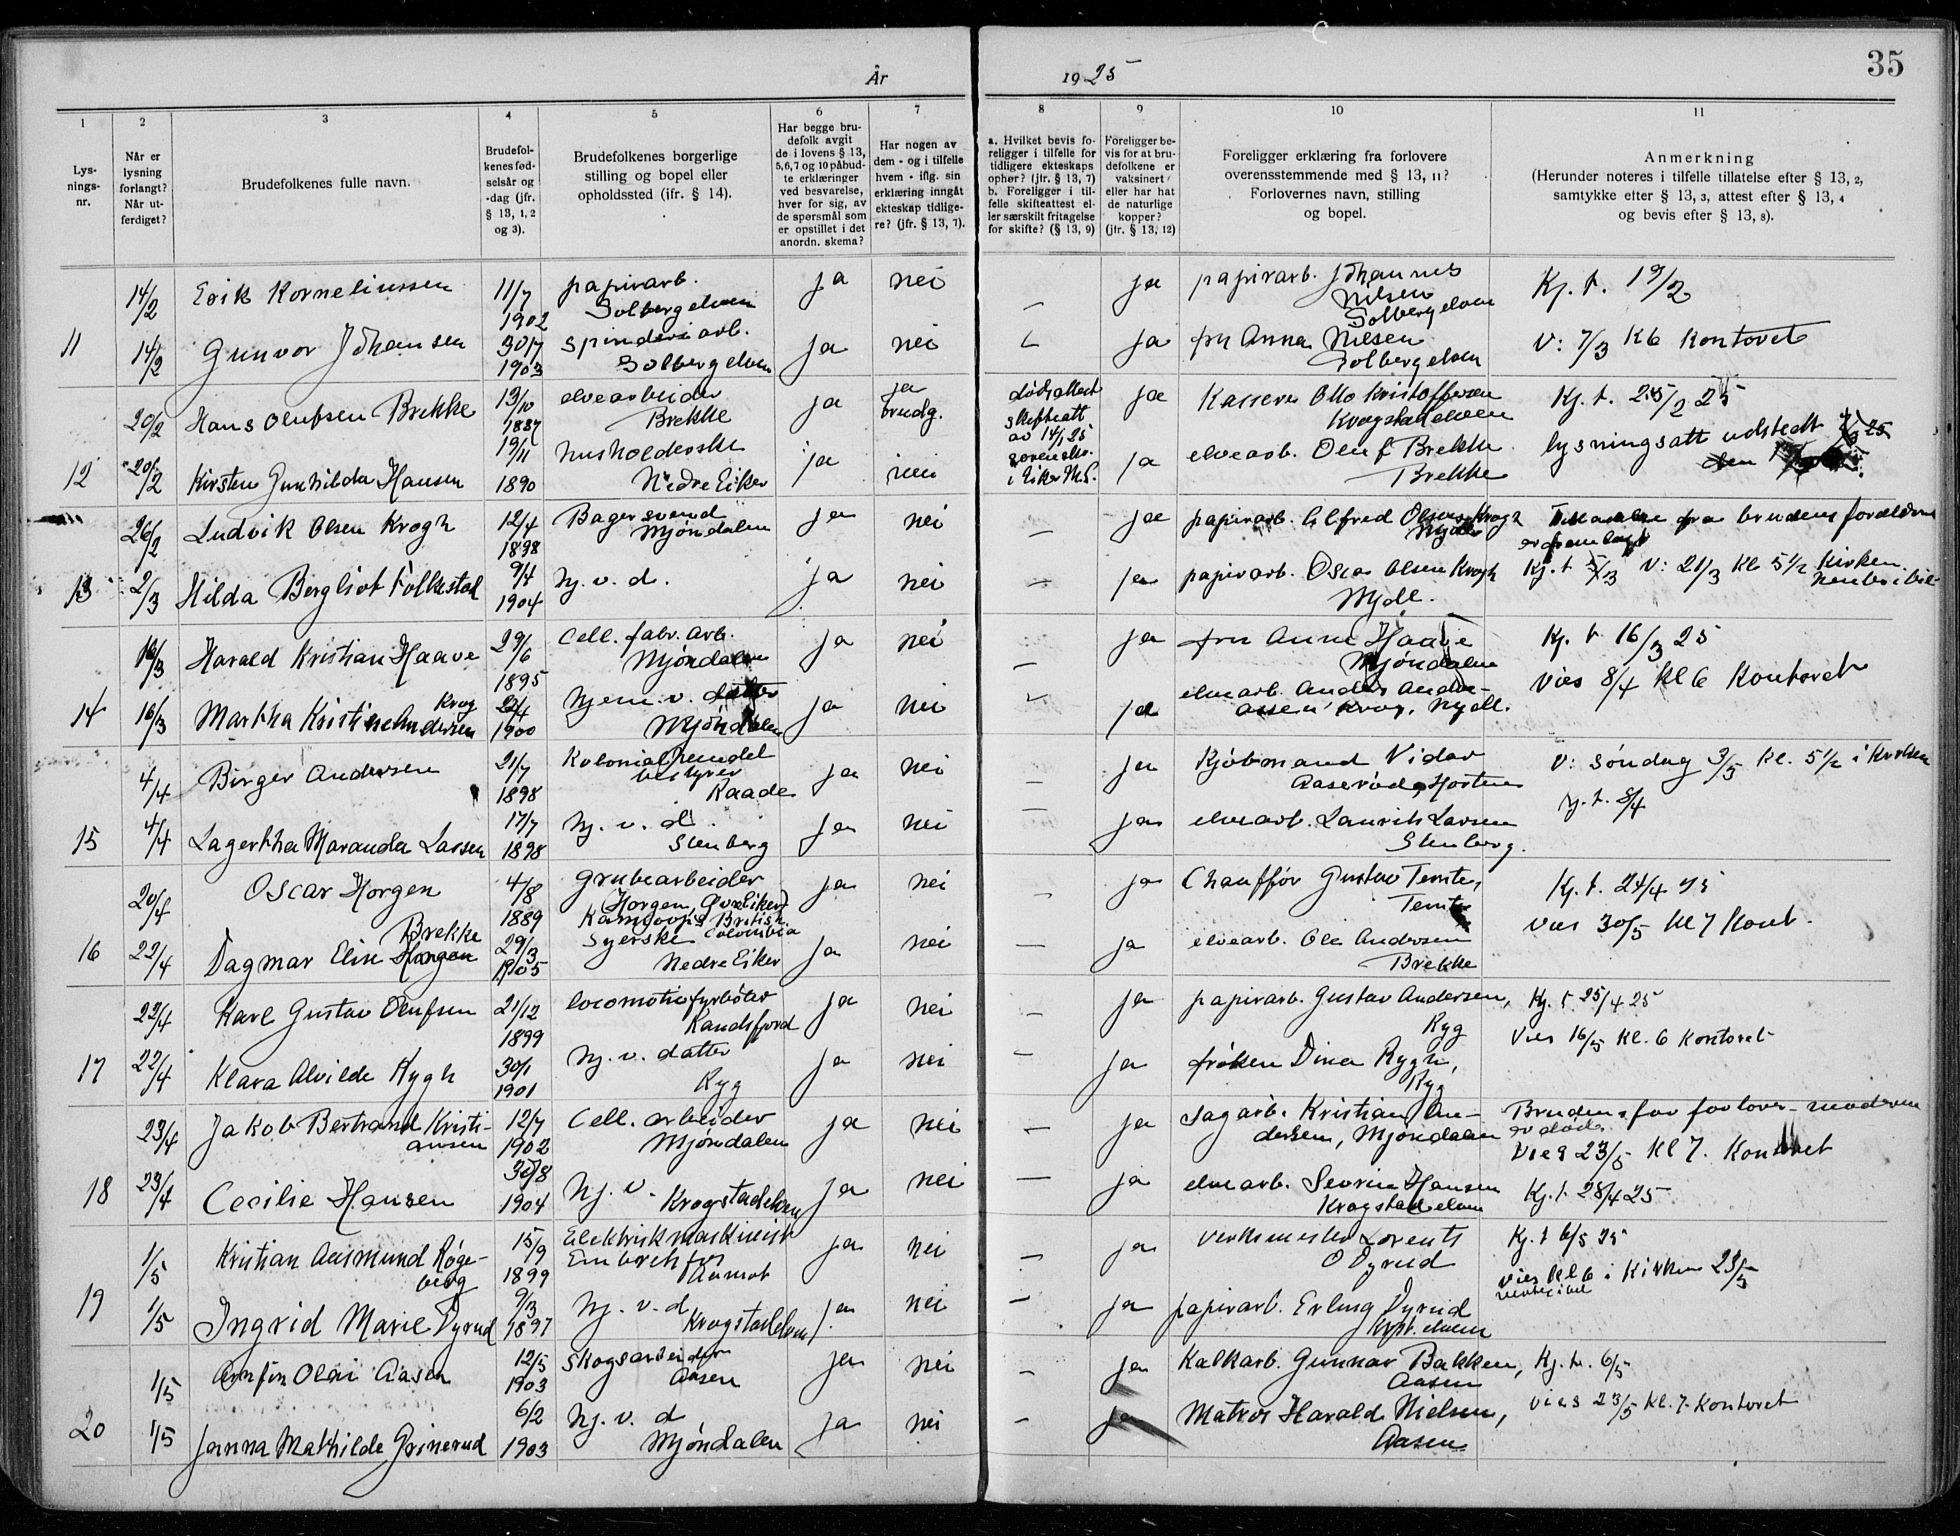 35
År 1925
1
2
3
4
5
6
7
8
9
10
11
Lys-
nings-
nr.
Når er
lysning
forlangt?
Når ut-
ferdiget?
Brudefolkenes fulle navn.
Brudefol-
kenes fød-
selsår og
-dag (jfr.
§ 13, 1, 2
og 3).
Brudefolkenes borgerlige
stilling og bopel eller
opholdssted (ifr. § 14).
Har begge bru-
defolk avgit
de i lovens § 13,
5, 6, 7 og 10 påbud-
te erklæringer
ved besvarelse,
hver for sig, av
de spørsmål som
er opstillet i det
anordn. skema?
Har nogen av
dem - og i tilfelle
hvem - iflg. sin
erklæring inngått
ekteskap tidlige-
re? (jfr. § 13, 7).
a. Hvilket bevis fo-
religger i tilfelle for
tidligere ekteskaps
ophør? (jfr. § 13, 7)
b. Foreligger i til-
felle skifteattest el-
ler særskilt fritagelse
for skifte? (§ 13, 9)
Foreligger be-
vis for at bru-
defolkene er
vaksinert
eller har hat
de naturlige
kopper?
(jfr. § 13, 12)
Foreligger erklæring fra forlovere
overensstemmende med § 13, 11?
Forlovernes navn, stilling
og bopel.
Anmerkning
(Herunder noteres i tilfelle tillatelse efter § 13, 2,
samtykke efter § 13, 3, attest efter § 13, 4
og bevis efter § 13, 8).
14/2 Erik Korneliussen 11/7 1902 papirarb. Solbergelven ja nei — ja papirarb. Johannes Nilsen Solbergelven Kj. t. 19/2
11 14/2 Gunvor Johansen 30/7 1903 spinderiarb. Solbergelven ja nei — ja fru Anna Nilsen Solbergelven V: 7/3 Kl 6 Kontoret
20/2 Hans Olufsen Brekke 13/10 1887 elvearbeider Brekke ja ja brudg. dødsattest skifteatt av 14/1 25 sorenskr. i Eiker ja Kasserer Otto Kristoffersen Krogstadelven Kj. t. 25/2 25
12 20/2 Kirsten Gunhilda Hansen 19/11 1890 husholderske Nedre Eiker ja nei ja elvearb. Oluf Brekke Brekke lysningsatt udstedt 25
26/2 Ludvik Olsen Krogh 12/4 1898 Bagersvend Mjøndalen ja nei — ja papirarb. Alfred Olsen Krogh Mjdl. Tilladelse fra brudens forældre er fremlagt
13 2/3 Hilda Bergliot Folkestad 9/4 1904 hj. v. d. ja nei — ja papirarb. Oscar Olsen Krogh Mjdl. Kj. t 5/3 V: 21/3 Kl 5 1/2 Kirken
16/3 Harald Kristian Haave 29/6 1895 Cell. fabr. arb. Mjøndalen ja nei — ja fru Anna Haave Mjøndalen Kj. t 16/3 25
14 16/3 Martha Kristine Andersen Krog 1900 hjem. v. datter Mjøndalen ja nei — ja elvearb. Anders Andreassen Krog, Mjdl. Vies 8/4 Kl 6 Kontoret
4/4 Birger Andersen 21/7 1898 Kolonialhandel bestyrer Raade ja nei — ja Kjøbmand Vidar Aaserød, Horten V: søndag 3/5 kl. 5 1/2 i Kirken
15 4/4 Lagertha Maranda Larsen 17/7 1898 hj. v. d. Stenberg ja nei — ja elvearb. Laurits Larsen Stenberg. Kj. t. 8/4
20/4 Oscar Horgen 4/8 1889 grubearbeider Horgen, Øvre Eiker Kamloops British Colombia ja nei — ja Chauffør Gustav Temte, Temte Kj. t. 24/4 25
16 22/4 Dagmar Elin Horgen Brekke 29/3 1905 syerske Nedre Eiker ja nei — ja elvearb. Ole Andersen Brekke Vies 30/5 Kl 7 Kont.
22/4 Karl Gustav Olufsen 21/12 1899 locomotivfyrbøter Randsfjord ja nei ja papirarb. Gustav Andersen, Ryg Kj. t 25/4 25
17 22/4 Klara Alvilde Rygh 30/1 1901 hj. v. datter Ryg ja nei — ja frøken Dina Rygh, Ryg Vies 16/5 Kl. 6 Kontoret
23/4 Jakob Bertrand Kristiansen 12/7 1902 Cell. arbeider Mjøndalen ja nei — ja sagarb. Kristian Andersen, Mjøndalen Brudens far forlover - moderen er død. Vies 23/5 Kl 7. Kontoret
18 23/4 Cecilie Hansen 30/8 1904 hj. v. Krogstadelven ja nei — ja elvearb. Severin Hansen Krogstadelven Kj. t. 28/4 25
1/5 Kristian Aasmund Røgeberg 15/9 1899 Elektrisk maskinist Embretsfos Aamot ja nei — ja verksmester Lorents O Dyrud Kj. t 6/5 25
19 1/5 Ingrid Marie Dyrud 1897 hj. v. d Krogstadelven ja nei — ja papirarb. Erling Dyrud Krst. elven Vies Kl 6 i Kirken 23/5
1/5 Arnfin Olai Aasen 12/5 1903 skogsarbeider Aasen ja nei — ja Kalkarb. Gunnar Bakken, Aasen Kj. t. 6/5
20 1/5 Janna Mathilde Grinerud 6/2 1903 hj. v. d Mjøndalen ja nei — ja Matros Harald Nielsen, Aasen vies 23/5 kl. 7. Kontoret